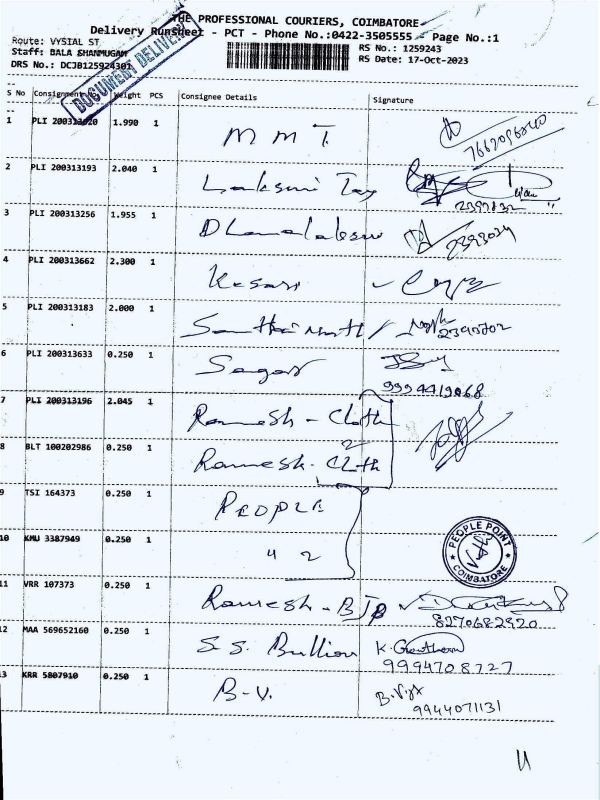 THE PROFESSIONAL COURIERS, COIMBATORE
Delivery Runsheet - PCT - Phone No.:0422-3505555 - Page No.:1
Route: VYSIAL ST
RS No.: 1259243
Staff: BALA SHANMUGAM
RS Date: 17-Oct-2023
DRS No.: DCJB125924301
DOCUMENT DELIVERY
S No Consignment No Weight PCS Consignee Details Signature
1 PLI 1.990 1 M M T.
2 PLI 200313193 2.040 1 Lakshmi
3 PLI 200313256 1.955 1 2393034
4 PLI 200313662 2.300 1 Kesari
5 PLI 200313183 2.000 1
6 PLI 200313633 0.250 1 Sagar
9994419068
7 PLI 200313196 2.045 1 Ramesh - Cloth
2
8 BLT 100202986 0.250 1 Ramesh - Cloth
9 TSI 164373 0.250 1 PEOPLE
PEOPLE POINT
COIMBATORE
10 KMU 3387949 0.250 1 " 2
11 VRR 107373 0.250 1 Ramesh - BJB
8270682920
12 MAA 569652160 0.250 1 S.S. Bullion K. Gowtham
9994708727
13 KRR 5807910 0.250 1 B-V.
9944071131
4